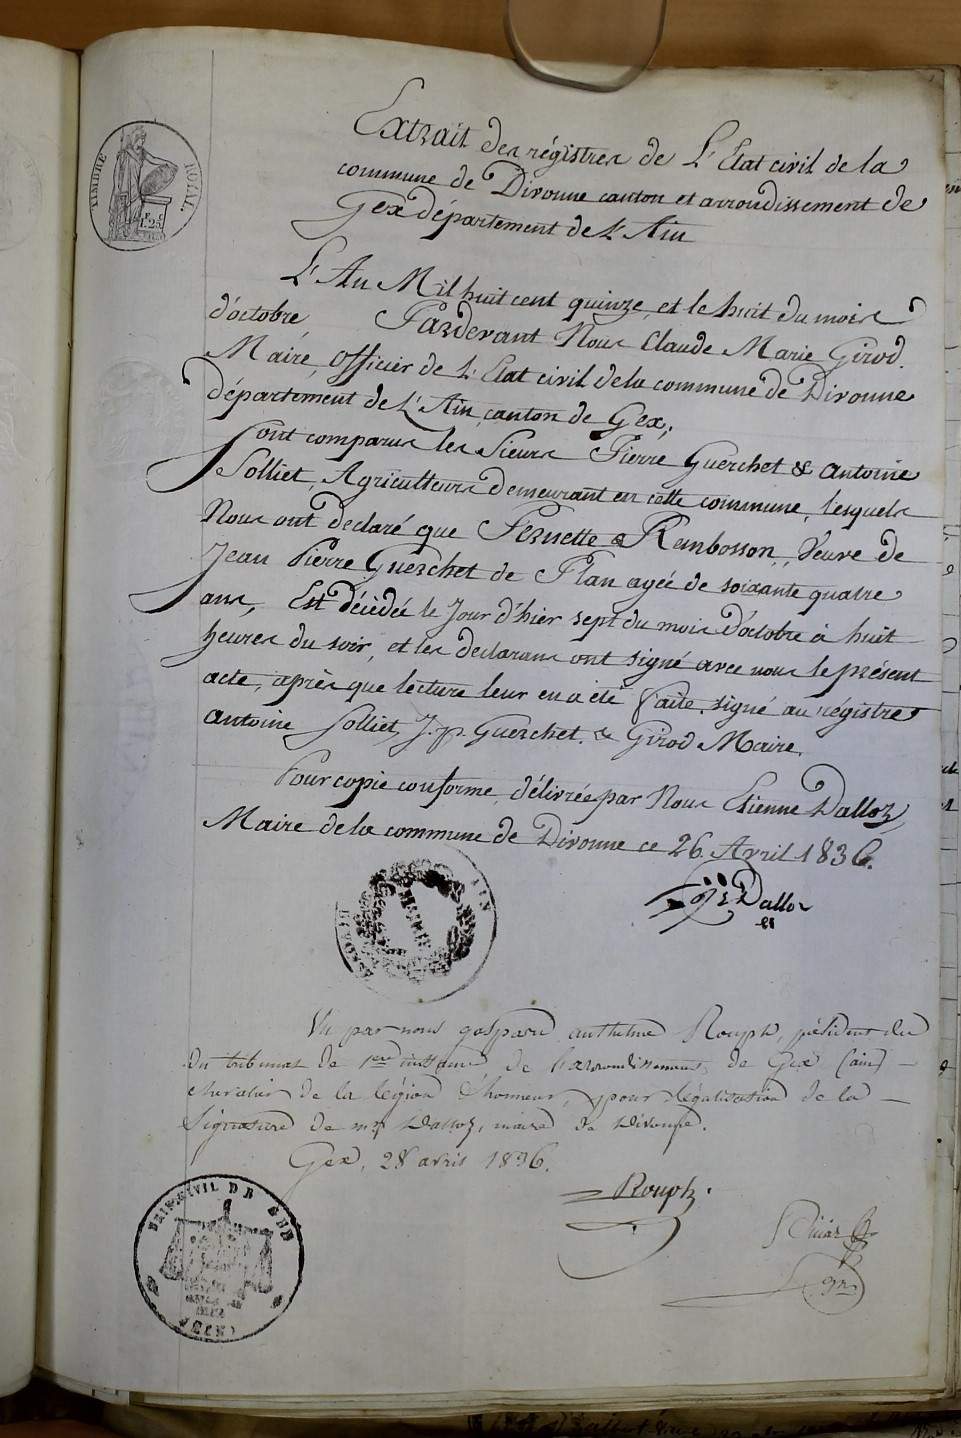 TIMBRE ROYAL.
1F. 25C
Extrait des régistres de L'Etat civil de la
commune de Divonne canton et arrondissement de
Gex département de L'Ain
L'An Mil huit cent quinze, et le huit du mois
d'octobre, Pardevant Nous Claude Marie Girod.
Maire, Officier de L'Etat civil de la commune de Divonne
département de L'Ain, canton de Gex,
Sont comparus les Sieurs Pierre Guerchet & antoine
Solliet, Agriculteurs demeurant en cette commune, lesquels
Nous ont declaré que Pernette Rembosson, Veuve de
Jean Pierre Guerchet de Plan agée de soixante quatre
ans, Est décèdée le Jour d'hier sept du mois d'octobre à huit
heures du soir, et les declarans ont signé avec nous le présent
acte, après que lecture leur en a été faite. signé au régistre
antoine Solliet, J. p. Guerchet. & Girod Maire.
Pour copie conforme, délivrée par Nous Etienne Dalloz,
Maire de la commune de Divonne ce 26 Avril 1836.
Dalloz
AIN
Vu par nous gaspard anthelme Rouph, président
du tribunal de 1ere instance de l'arrondissement de Gex (ain)
chevalier de la légion d'honneur, pour légalisation de la
Signature de mr Dalloz, maire de Divonne.
Gex, 28 avril 1836.
Rouph.
CIVIL DE